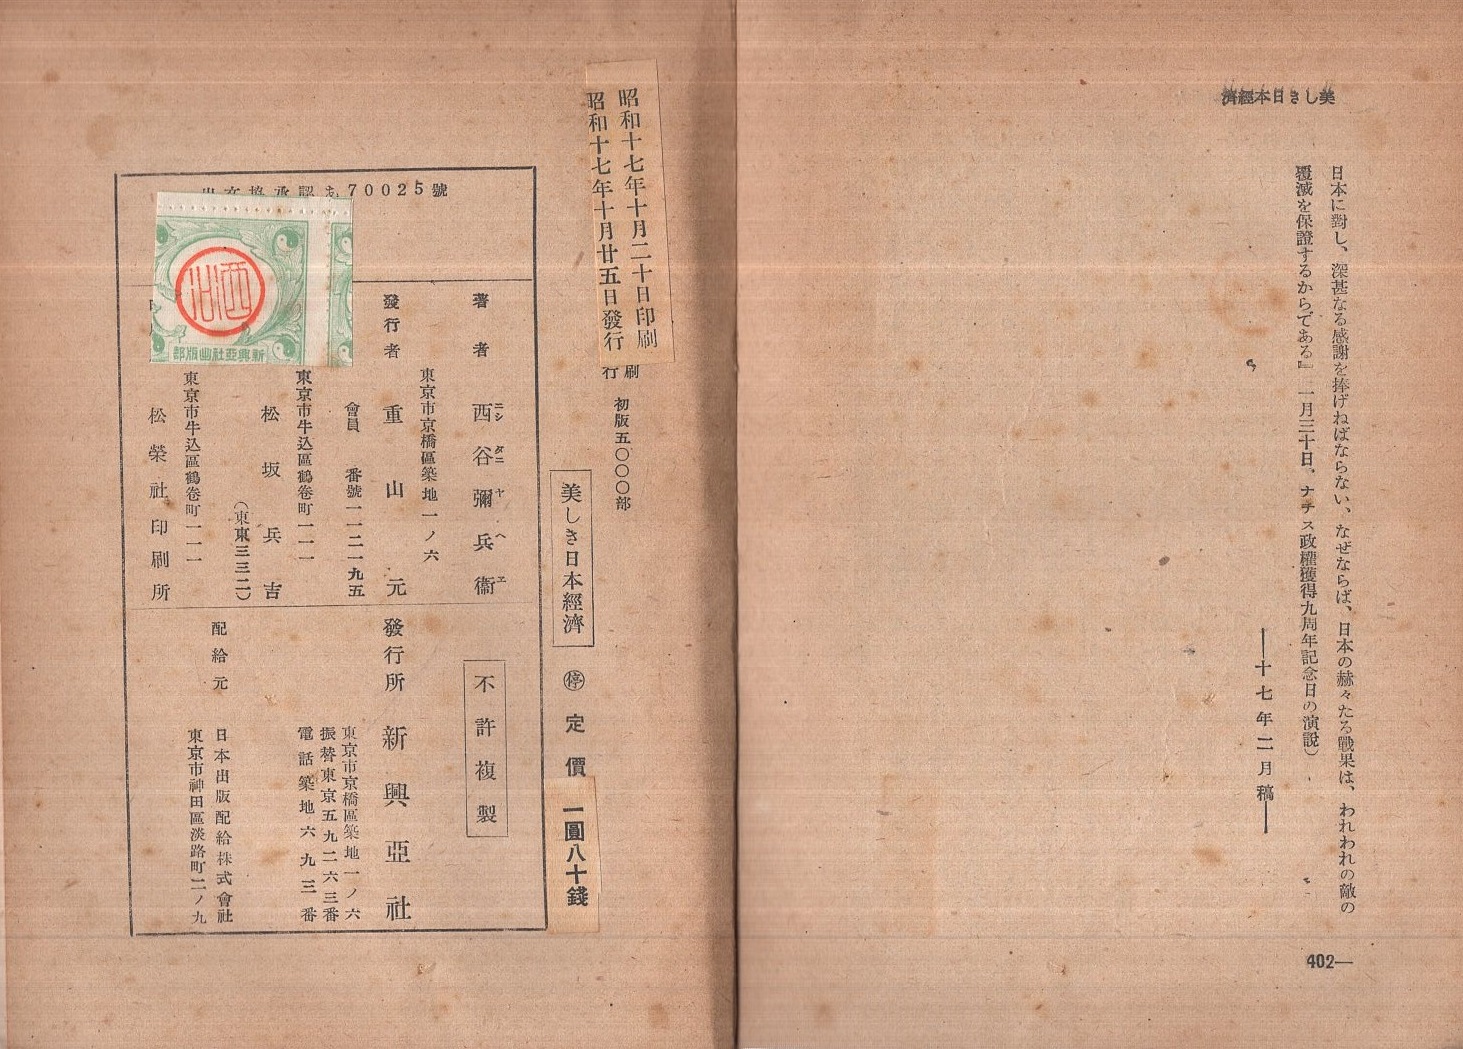 美しき日本經濟
日本に對し、深甚なる感謝を捧げねばならない、なぜならば、日本の赫々たる戰果は、われわれの敵の
覆滅を保證するからである』(一月三十日、ナチス政權獲得九周年記念日の演說)
―十七年二月稿―
402―
昭和十七年十月二十日印刷
昭和十七年十月廿五日發行
刷
行
初版五〇〇〇部
美しき日本經濟
停 定價 一圓八十錢
70025號
著者 西谷彌兵衞
ニシ タニ ヤ ヘ エ
東京市京橋區築地一ノ六
發行者 重山元
會員番號一一二一九五
東京市牛込區鶴卷町一一一
松坂兵吉
(東東三三二)
東京市牛込區鶴卷町一一一
松榮社印刷所
新興亞社出版部
不許複製
發行所 新興亞社
東京市京橋區築地一ノ六
振替東京五九二六三番
電話築地六九三番
配給元
日本出版配給株式會社
東京市神田區淡路町二ノ九